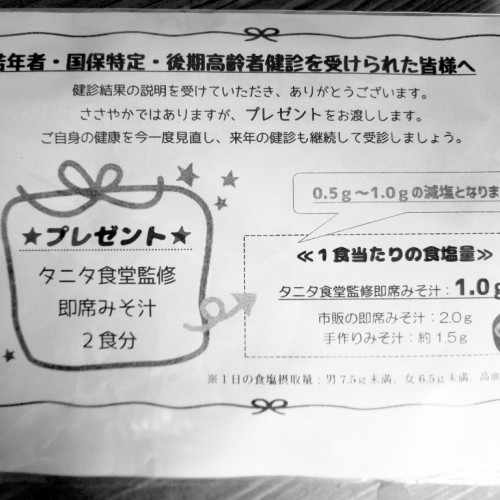 若年者・国保特定・後期高齢者健診を受けられた皆様へ
健診結果の説明を受けていただき、ありがとうございます。
ささやかではありますが、プレゼントをお渡しします。
ご自身の健康を今一度見直し、来年の健診も継続して受診しましょう。
★プレゼント★
タニタ食堂監修
即席みそ汁
2食分
0.5g～1.0gの減塩となりま
≪1食当たりの食塩量≫
タニタ食堂監修即席みそ汁：1.0g
市販の即席みそ汁：2.0g
手作りみそ汁：約1.5g
※1日の食塩摂取量：男7.5g未満、女6.5g未満、高血